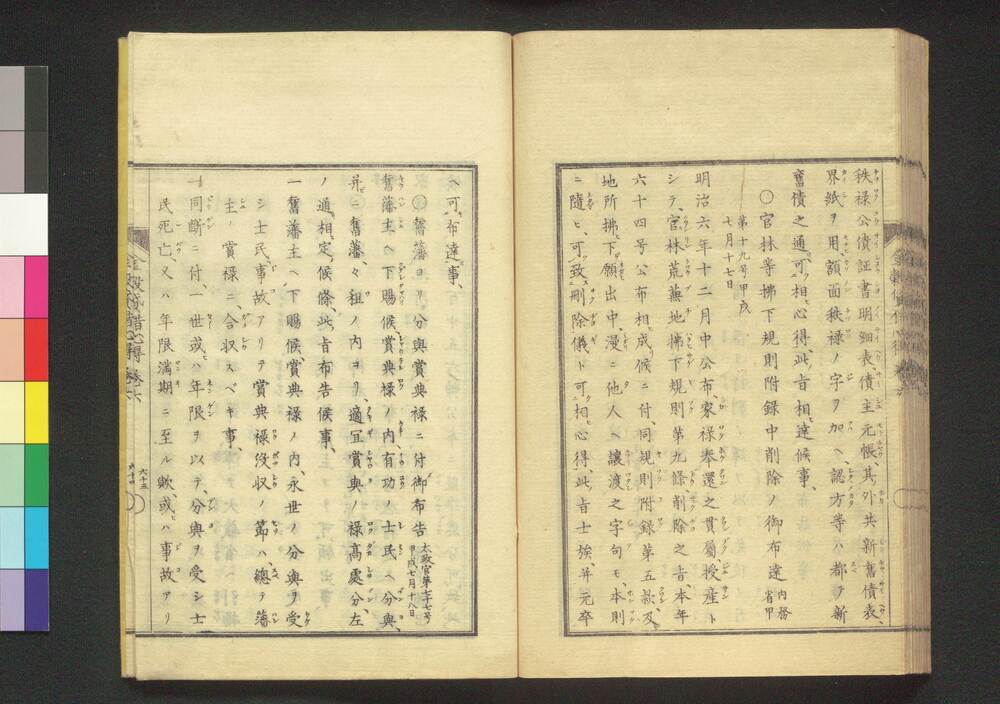 秩禄公債証書明細表債主元帳、其外共新舊債表
界紙ヲ用、額面秩禄ノ字ヲ加ヘ、認方等ハ都テ新
舊債之通可相心得此旨相達候事、
〇官林等拂下規則附録中削除ノ御布達 内務省甲
第十九号甲戌
七月十七日
明治六年十二月中公布家禄奉還之貫属授産ト
シテ、官林荒蕪地拂下規則第九條削除之旨、本年
六十四号公布相成候ニ付、同規則附録第五款及
地所拂下願出中、漫ニ他人ヘ讓渡之字句モ、本則
ニ隨ヒ、可致削除儀ト可相心得、此旨士族、并元卒
ヘ可布達事、
〇舊藩ヨリ分與賞典禄ニ付御布告 太政官第七十七号
甲戌七月十八日
舊藩主ヘ下賜候賞典禄ノ内、有功ノ士民ヘ分與、
并ニ舊藩々租ノ内ヨリ、適宜賞與ノ禄高處分、左
ノ通相定候條、此旨布告候事、
一舊藩主ヘ下賜候賞典禄ノ内、永世ノ分與ヲ受
シ士民、事故アリテ賞典禄没収ノ節ハ、總テ藩
主ノ賞禄ニ合収スベキ事、
一同斷ニ付、一世或ハ年限ヲ以テ、分與ヲ受シ士
民死亡、又ハ年限満期ニ至ル歟、或ハ事故アリ
六十五